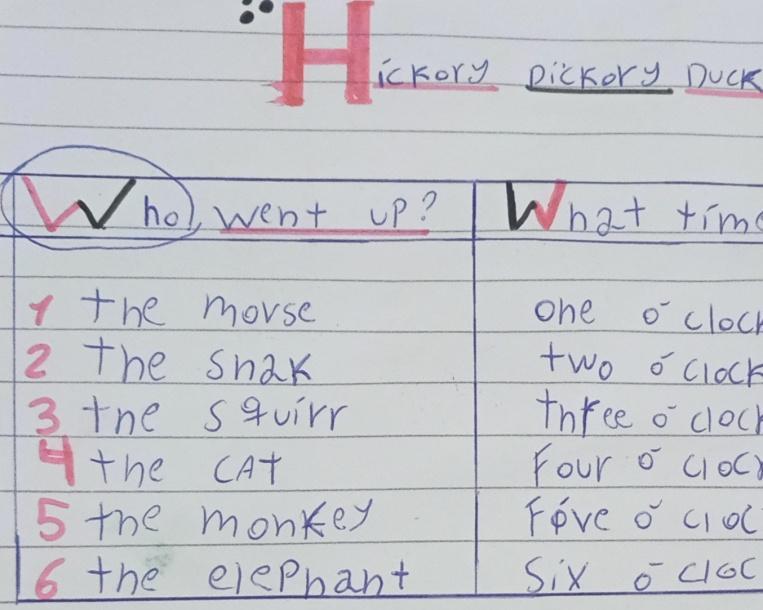 Hickory Dickory Duck
Who, went up? What time
1 the morse one o'clock
2 the snak two o'clock
3 the squirr three o'clock
4 the cat Four o'clock
5 the monkey Five o'cloc
6 the elephant Six o'cloc